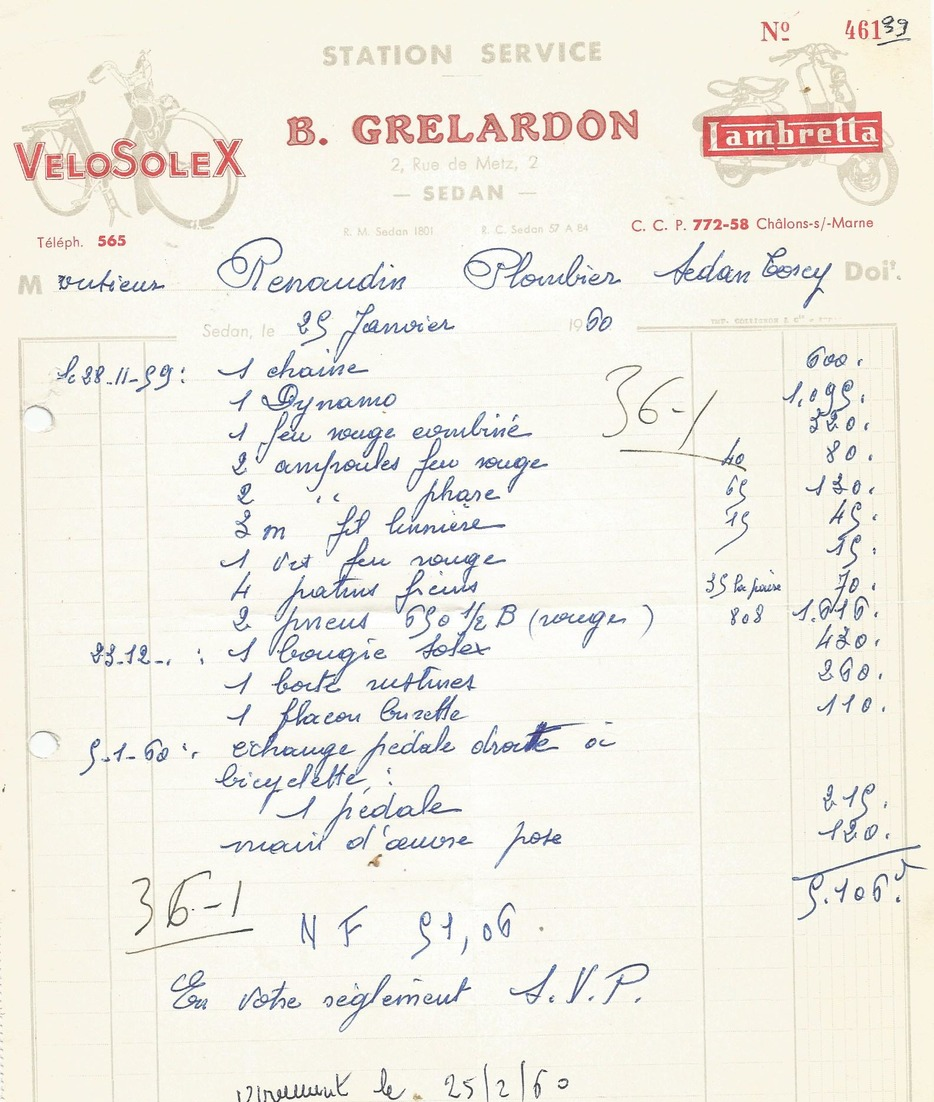 Nº 461
STATION SERVICE
B. GRELARDON
2, Rue de Metz, 2
— SEDAN —
VELOSOLEX
Lambretta
Téléph. 565
R. M. Sedan 1801
R. C. Sedan 57 A 84
C. C. P. 772-58 Châlons-s/-Marne
Monsieur Renaudin Plombier Sedan Torcy Doit.
Sedan, le 25 Janvier 1960
le 28-11-59 : 1 chaine 600.
1 Dynamo 1.095.
1 feu rouge combiné 320.
36-1
2 ampoules feu rouge 40 80.
2 " phase 65 130.
3 m fil lumière 15 45.
1 feu rouge 15.
4 patins freins 35 la paire 70.
2 pneus 650 1/2 B (rouges) 808 1.616.
23-12-. : 1 bougie solex 430.
1 boite rustines 260.
1 flacon burette 110.
5-1-60 : echange pédale droite à
bicyclette :
1 pédale 215.
main d'œuvre pose 120.
5.106.
36-1
N F 51,06.
En votre règlement S.V.P.
virement le 25/2/60